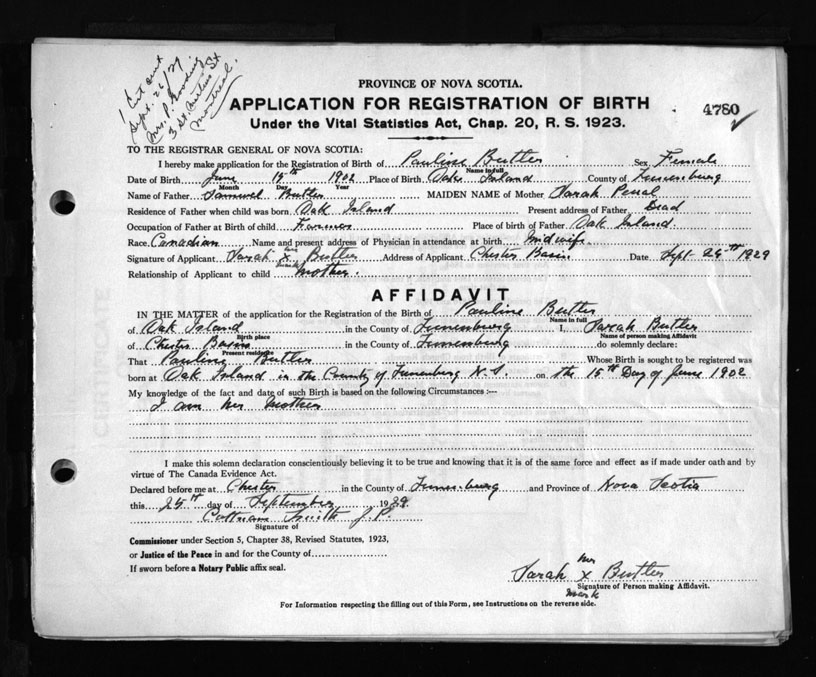 Cert sent
Sept. 26/29
Mrs. P. Gooding
3 St. St
Montreal.
PROVINCE OF NOVA SCOTIA.
APPLICATION FOR REGISTRATION OF BIRTH
4780
Under the Vital Statistics Act, Chap. 20, R. S. 1923.
TO THE REGISTRAR GENERAL OF NOVA SCOTIA:
I hereby make application for the Registration of Birth of Pauline Butler Sex Female
Name in full
Date of Birth June 15th 1902 Place of Birth Oak Island County of Lunenburg
Month Day Year
Name of Father Samuel Butler MAIDEN NAME of Mother Sarah
Residence of Father when child was born Oak Island Present address of Father Dead
Occupation of Father at Birth of child Farmer Place of birth of Father Oak Island.
Race Canadian Name and present address of Physician in attendance at birth Midwife
Signature of Applicant Sarah her x mark Butler Address of Applicant Chester Basin Date Sept 24th 1929
Relationship of Applicant to child Mother.
AFFIDAVIT
IN THE MATTER of the application for the Registration of the Birth of Pauline Butler
Name in full
of Oak Island in the County of Lunenburg I, Sarah Butler
Birth place Name of person making Affidavit
of Chester Basin in the County of Lunenburg do solemnly declare:
Present residence
That Pauline Butler Whose Birth is sought to be registered was
born at Oak Island in the County of Lunenburg N.S. on the 15th Day of June 1902
My knowledge of the fact and date of such Birth is based on the following Circumstances :—
I am her mother
I make this solemn declaration conscientiously believing it to be true and knowing that it is of the same force and effect as if made under oath and by
virtue of The Canada Evidence Act.
Declared before me at Chester in the County of Lunenburg and Province of Nova Scotia
this 24th day of September 1929
Cottnam Smith J.P.
Signature of
Commissioner under Section 5, Chapter 38, Revised Statutes, 1923,
or Justice of the Peace in and for the County of
If sworn before a Notary Public affix seal.
her
Sarah x Butler
mark
Signature of Person making Affidavit.
For Information respecting the filling out of this Form, see Instructions on the reverse side.